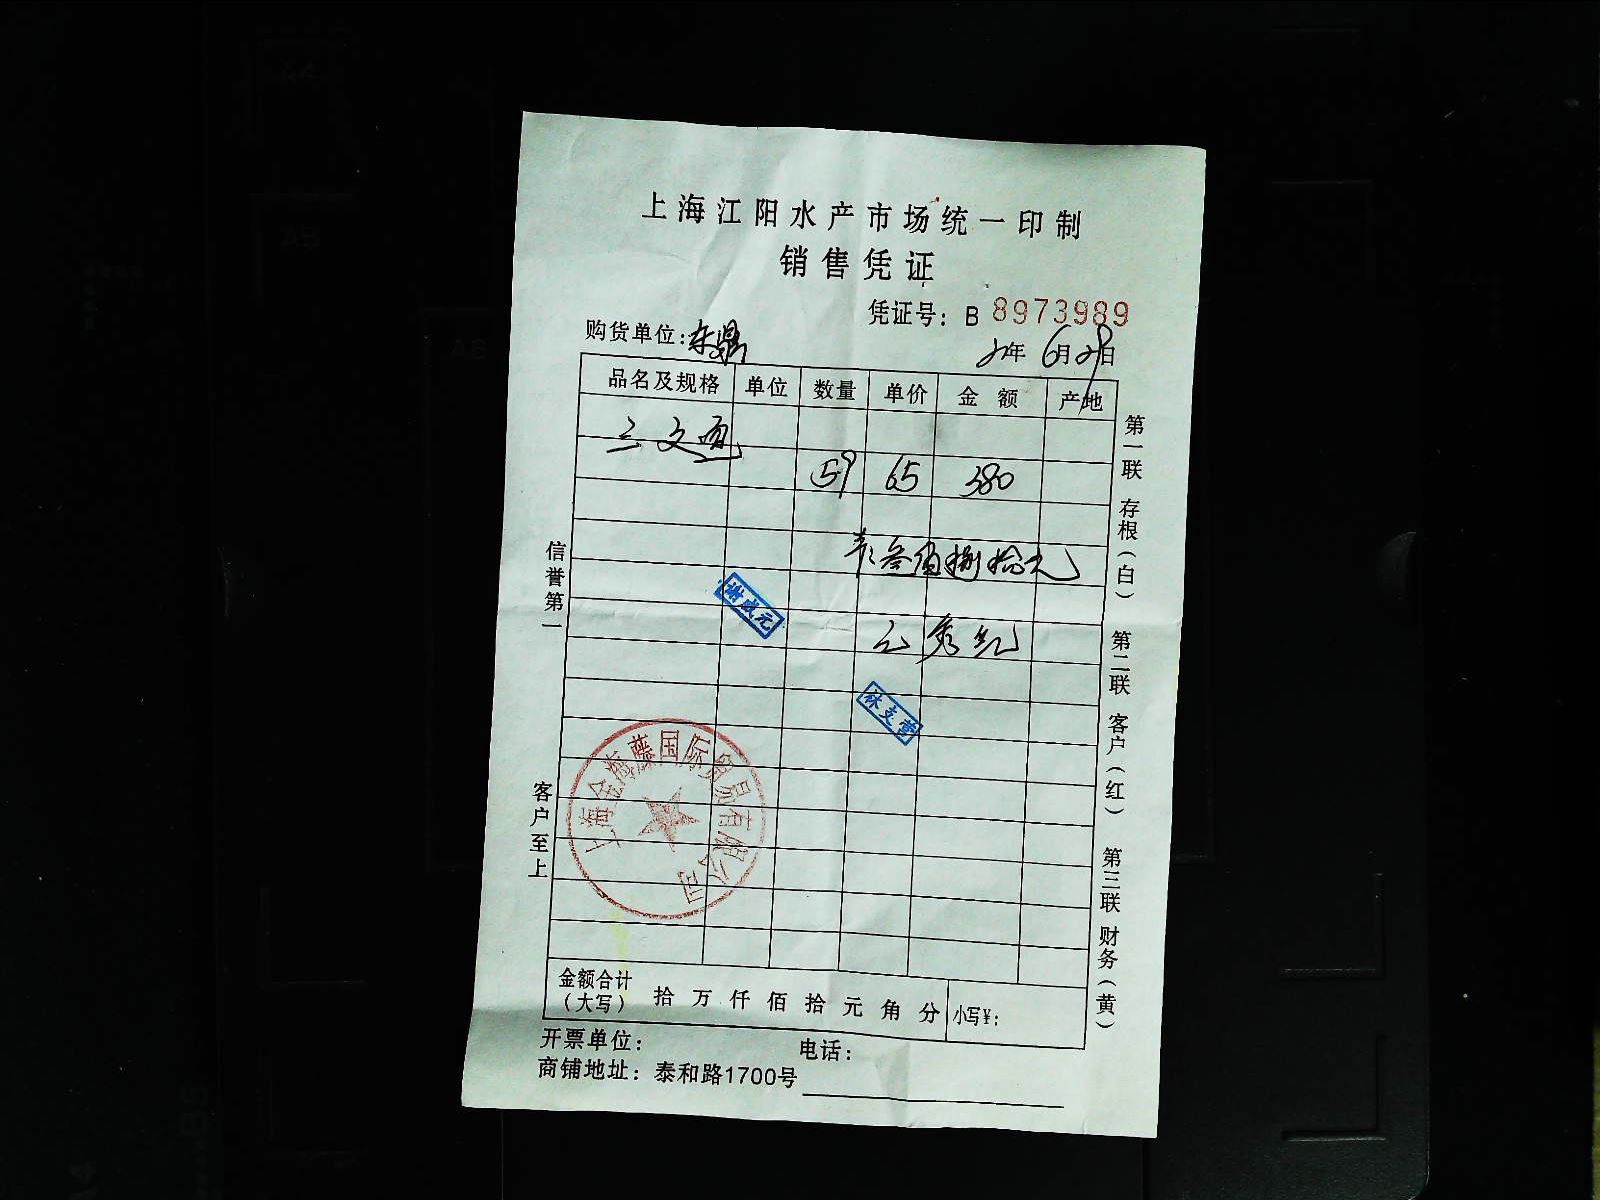 上海江阳水产市场统一印制
销售凭证
凭证号：B 8973989
购货单位：东鼎
年 6月29日
品名及规格 单位 数量 单价 金额 产地
三文鱼
59 65 380
叁佰捌拾元
谢成元
林支营
上海金海藤国际贸易有限公司
金额合计（大写） 拾 万 仟 佰 拾 元 角 分 小写¥：
开票单位： 电话：
商铺地址：泰和路1700号
信誉第一
客户至上
第一联 存根（白） 第二联 客户（红） 第三联 财务（黄）